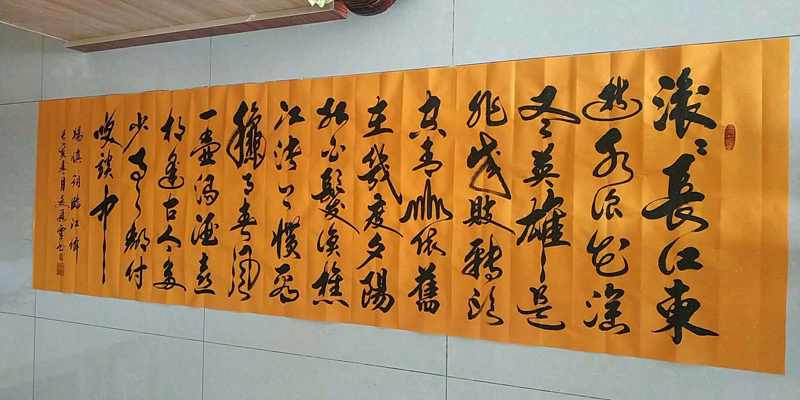 滚滚長江東
逝水浪花淘
尽英雄是
非成败转头
空青山依舊
在幾度夕陽
红白髮渔樵
江渚上惯看
龝月春風
一壶浊酒喜
相逢古今多
少事都付
笑谈中
楊慎词临江仙
己亥春月